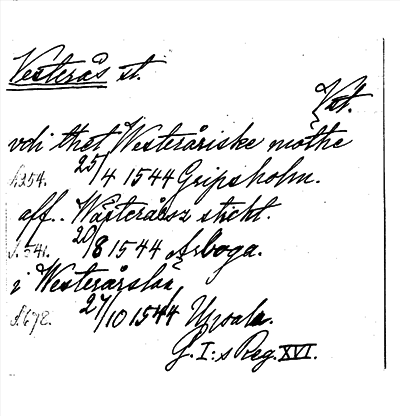 Vesterås st.
Vst.
vdi thet Westeråriske möthe
s. 254. 25/4 1544 Gripsholm.
aff.. Wästeråsz sticht.
s. 541. 20/8 1544 Arboga.
i Westerårslän
s. 672. 27/10 1544 Upsala.
G. I:s Reg. XVI.